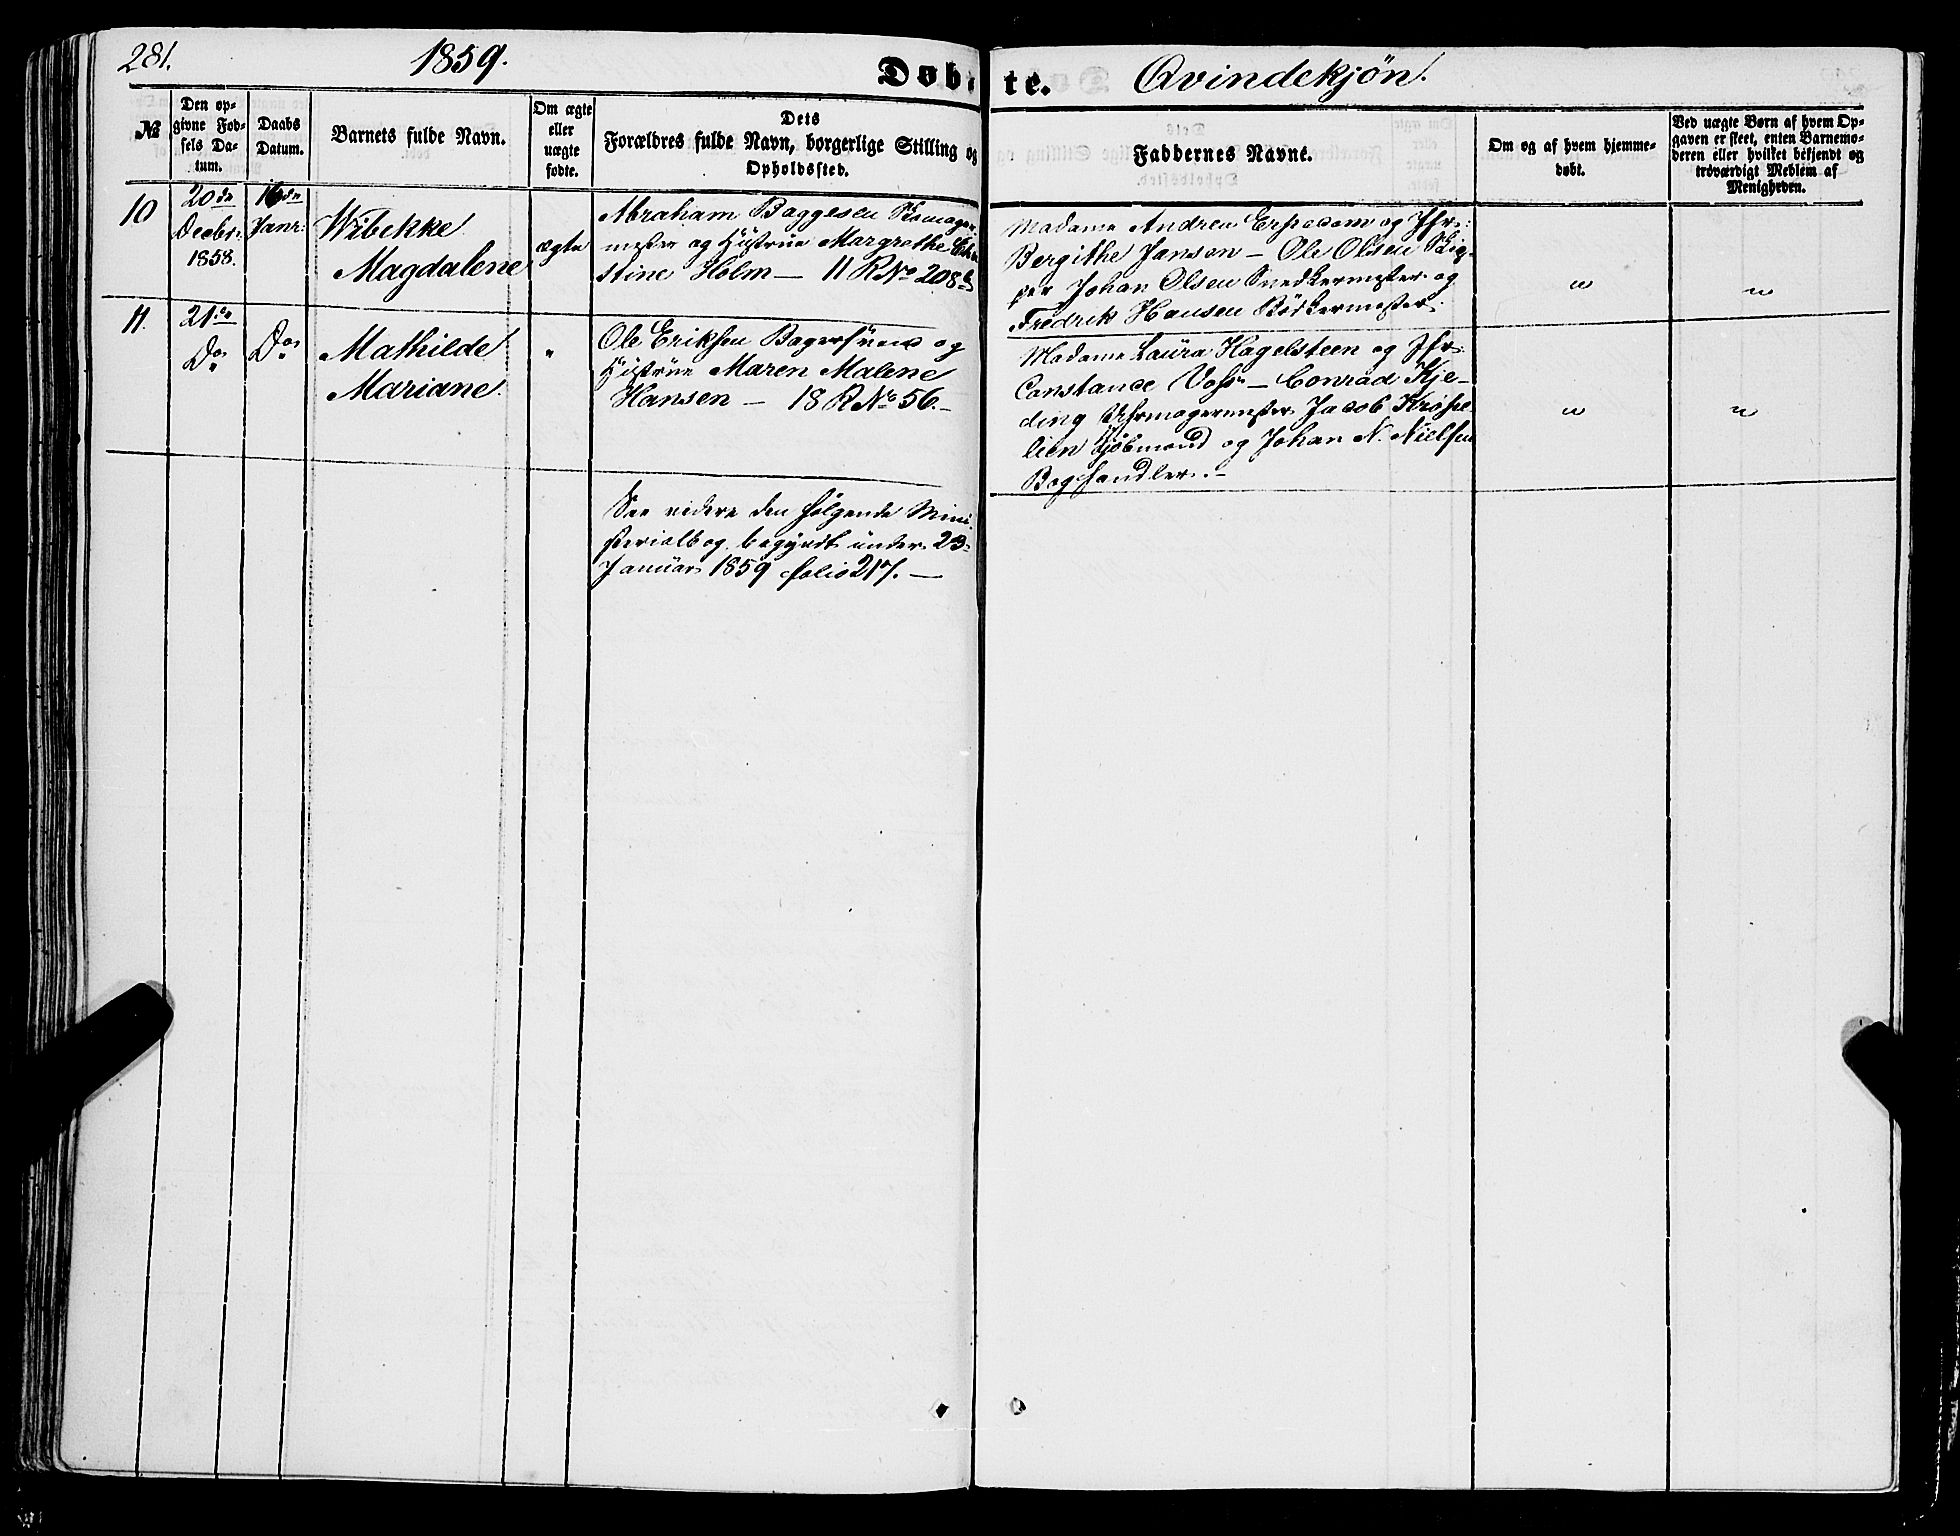 281.
1859.
Døbte.
Qvindekjøn.
№
Den op-
givne Fød-
sels Da-
tum.
Daabs
Datum.
Barnets fulde Navn.
Om ægte
eller
uægte
fødte.
Dets
Forældres fulde Navn, borgerlige Stilling og
Opholdssted.
Faddernes Navne.
Om og af hvem hjemme-
døbt.
Ved uægte Børn af hvem Op-
gaven er skeet, enten Barnemo-
deren eller hvilket bekjendt og
troværdigt Medlem af
Menigheden.
10
20de
Decbr:
1858.
16de
Janr:
Wibekke
Magdalene
ægte
Abraham Baggesen Skomager
mester og Hustrue Margrethe
stine Holm — 11 R No 208
Madame Andrea Erpecom og Jfr:
Bergithe Jansen — Ole Olsen
Johan Olsen Snedkermester og
Fredrik Hansen Bødkermester.
"
"
11.
21de
Do
Do
Mathilde
Mariane.
"
Ole Eriksen Bagersvend og
Hustrue Maren Malene
Hansen — 18 R No 56. —
Madame Laura Hagelsteen og Jfr:
Constance Voss — Conrad Kje-
ding Uhrmagermester Jacob
Kjøbmand og Johan N. Nielsen
Boghandler. —
"
"
See videre den følgende Mini-
sterialbog begyndt under 23
Januar 1859 folio 217. —